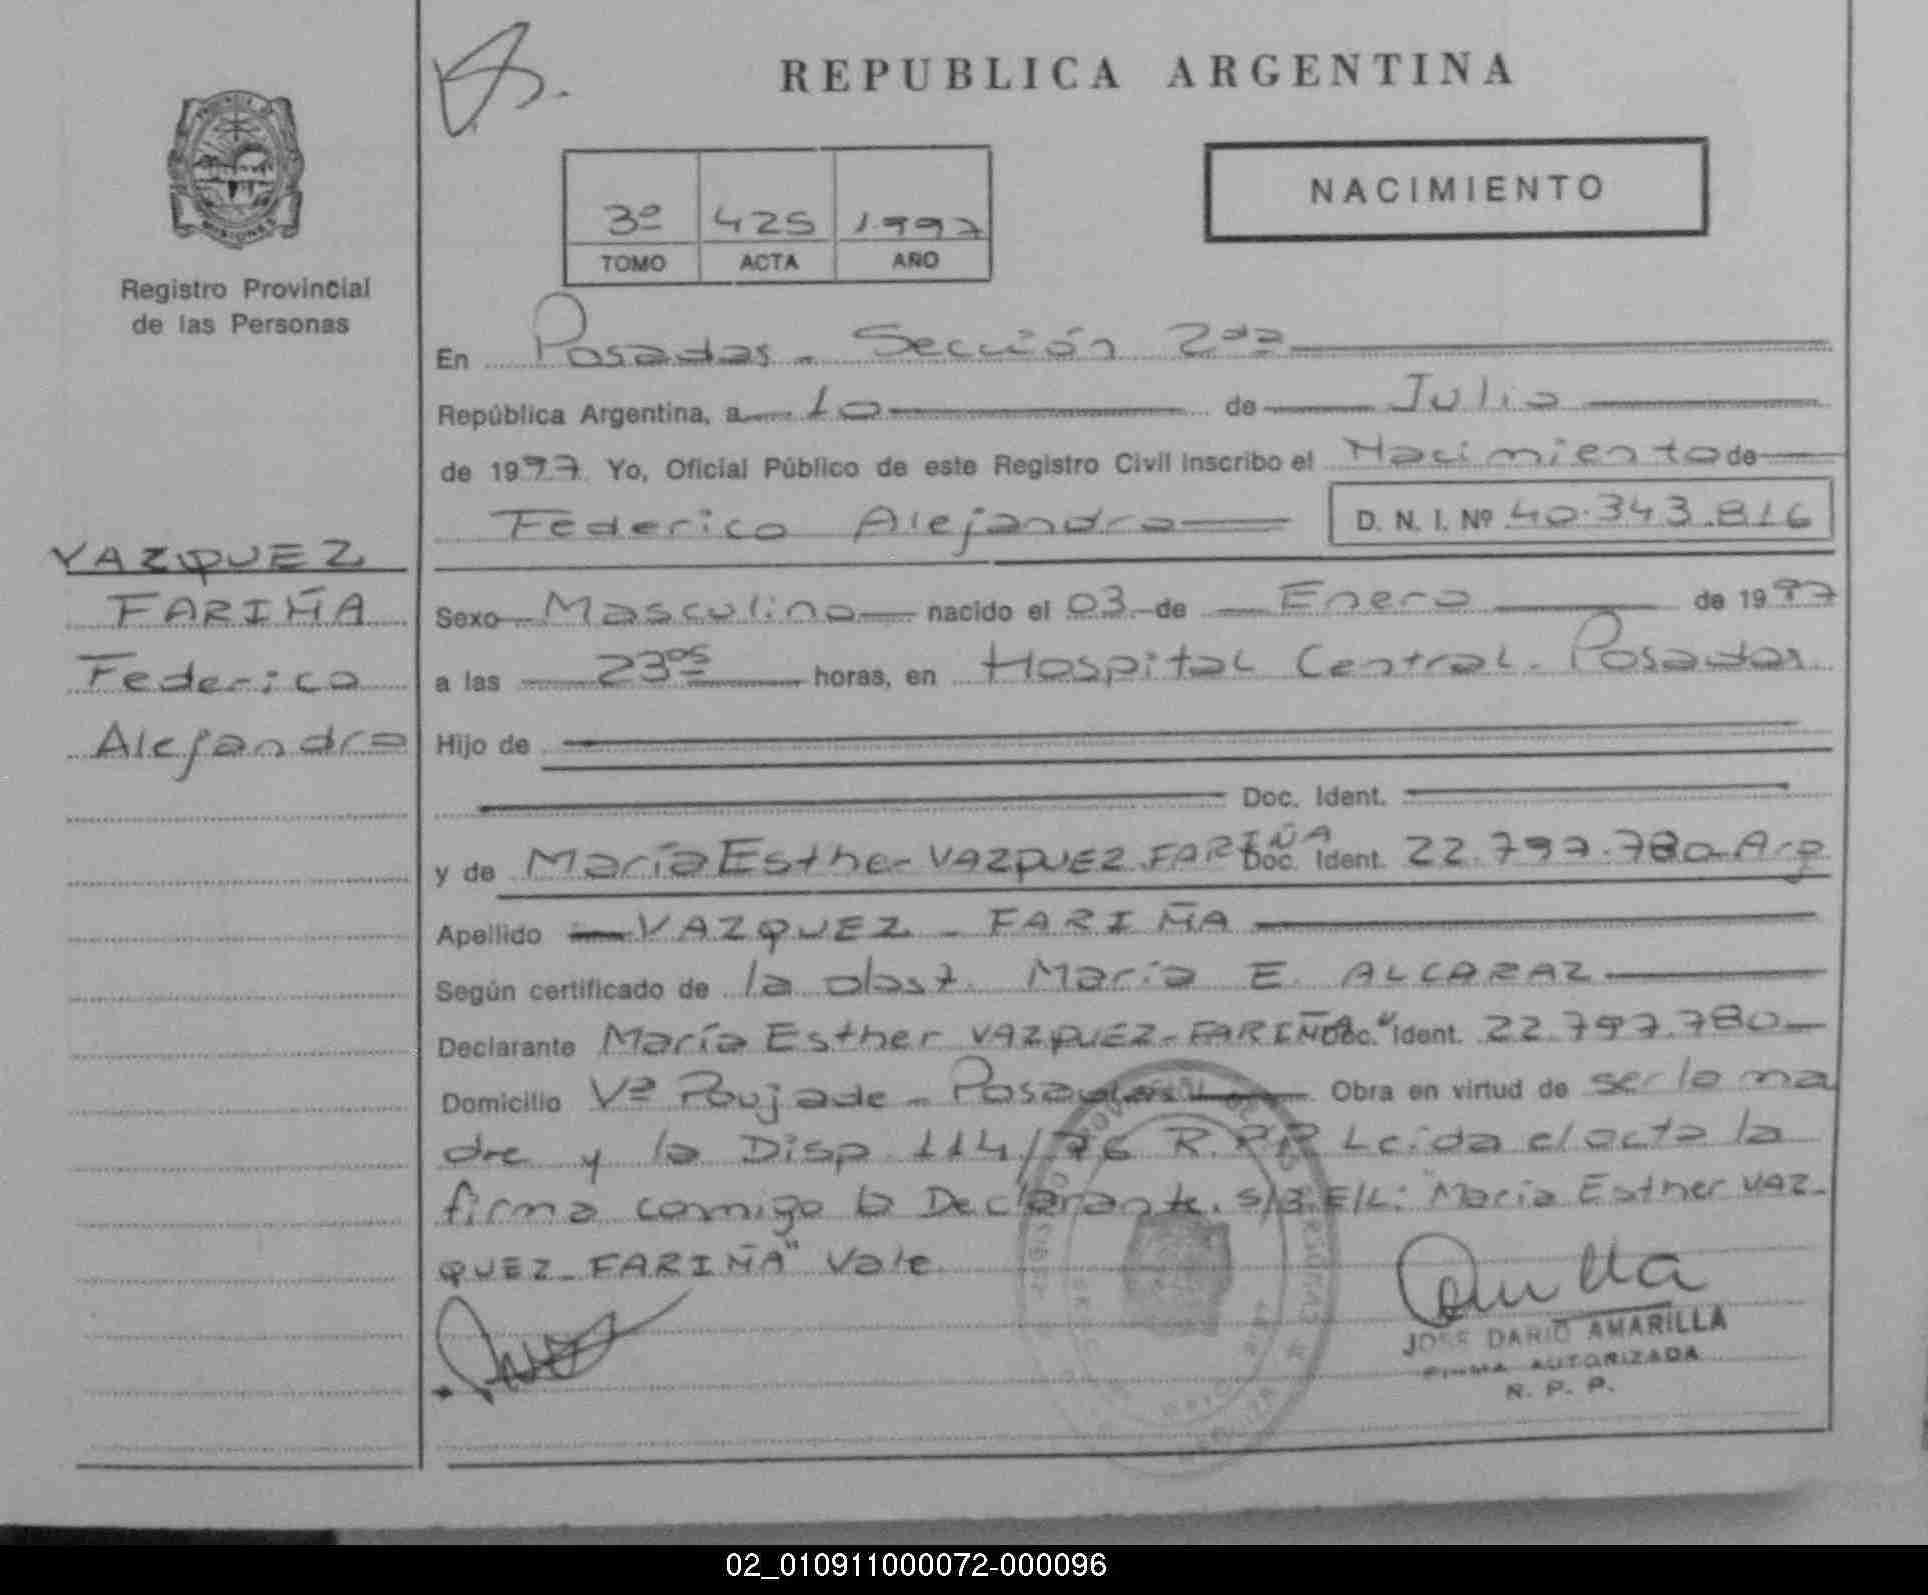 REPUBLICA ARGENTINA
3º 425 1.997
TOMO ACTA AÑO
NACIMIENTO
MISIONES
Registro Provincial
de las Personas
VAZQUEZ
FARIÑA
Federico
Alejandro
En Posadas - Sección 2da
República Argentina, a 10 de Julio
de 1997 Yo, Oficial Público de este Registro Civil inscribo el Nacimiento de
Federico Alejandro D. N. I. Nº 40.343.816
Sexo Masculino nacido el 03 de Enero de 1997
a las 23 05 horas, en Hospital Central - Posadas
Hijo de
Doc. Ident.
y de María Esther VAZQUEZ FARIÑA Doc. Ident. 22.797.780 Arg
Apellido VAZQUEZ - FARIÑA
Según certificado de la obst. María E. ALCARAZ
Declarante María Esther VAZQUEZ-FARIÑA Doc. Ident. 22.797.780
Domicilio Vª Poujade - Posadas Obra en virtud de ser la ma
dre y la Disp 114/76 R.P.P. Leida el acta la
firma conmigo la Declarante. S/B.E/L: "María Esther VAZ-
QUEZ-FARIÑA" Vale
JOSE DARIO AMARILLA
FIRMA AUTORIZADA
R. P. P.
02_010911000072-000096